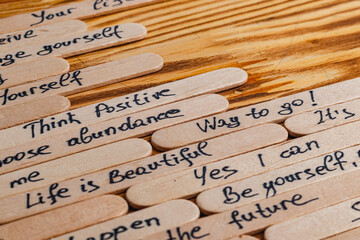 Your li
eive
ge yourself
yourself
Think Positive
oose abundance
Way to go!
It's
me
Life is Beautiful
Yes I can
Be yourself,
ppen
the future